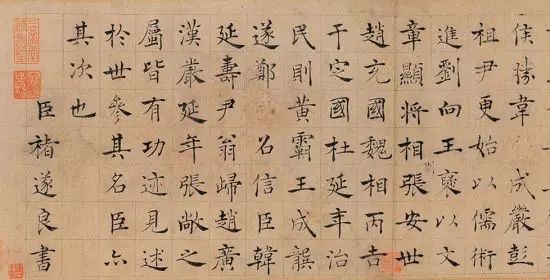 侯勝韋成嚴彭
祖尹更始以儒術
進劉向王襃以文
章顯將相張安世
趙充國魏相丙吉
于定國杜延年治
民則黃霸王成龔
遂鄭召信臣韓
延壽尹翁歸趙廣
漢嚴延年張敞之
屬皆有功迹見述
於世參其名臣亦
其次也
臣褚遂良書